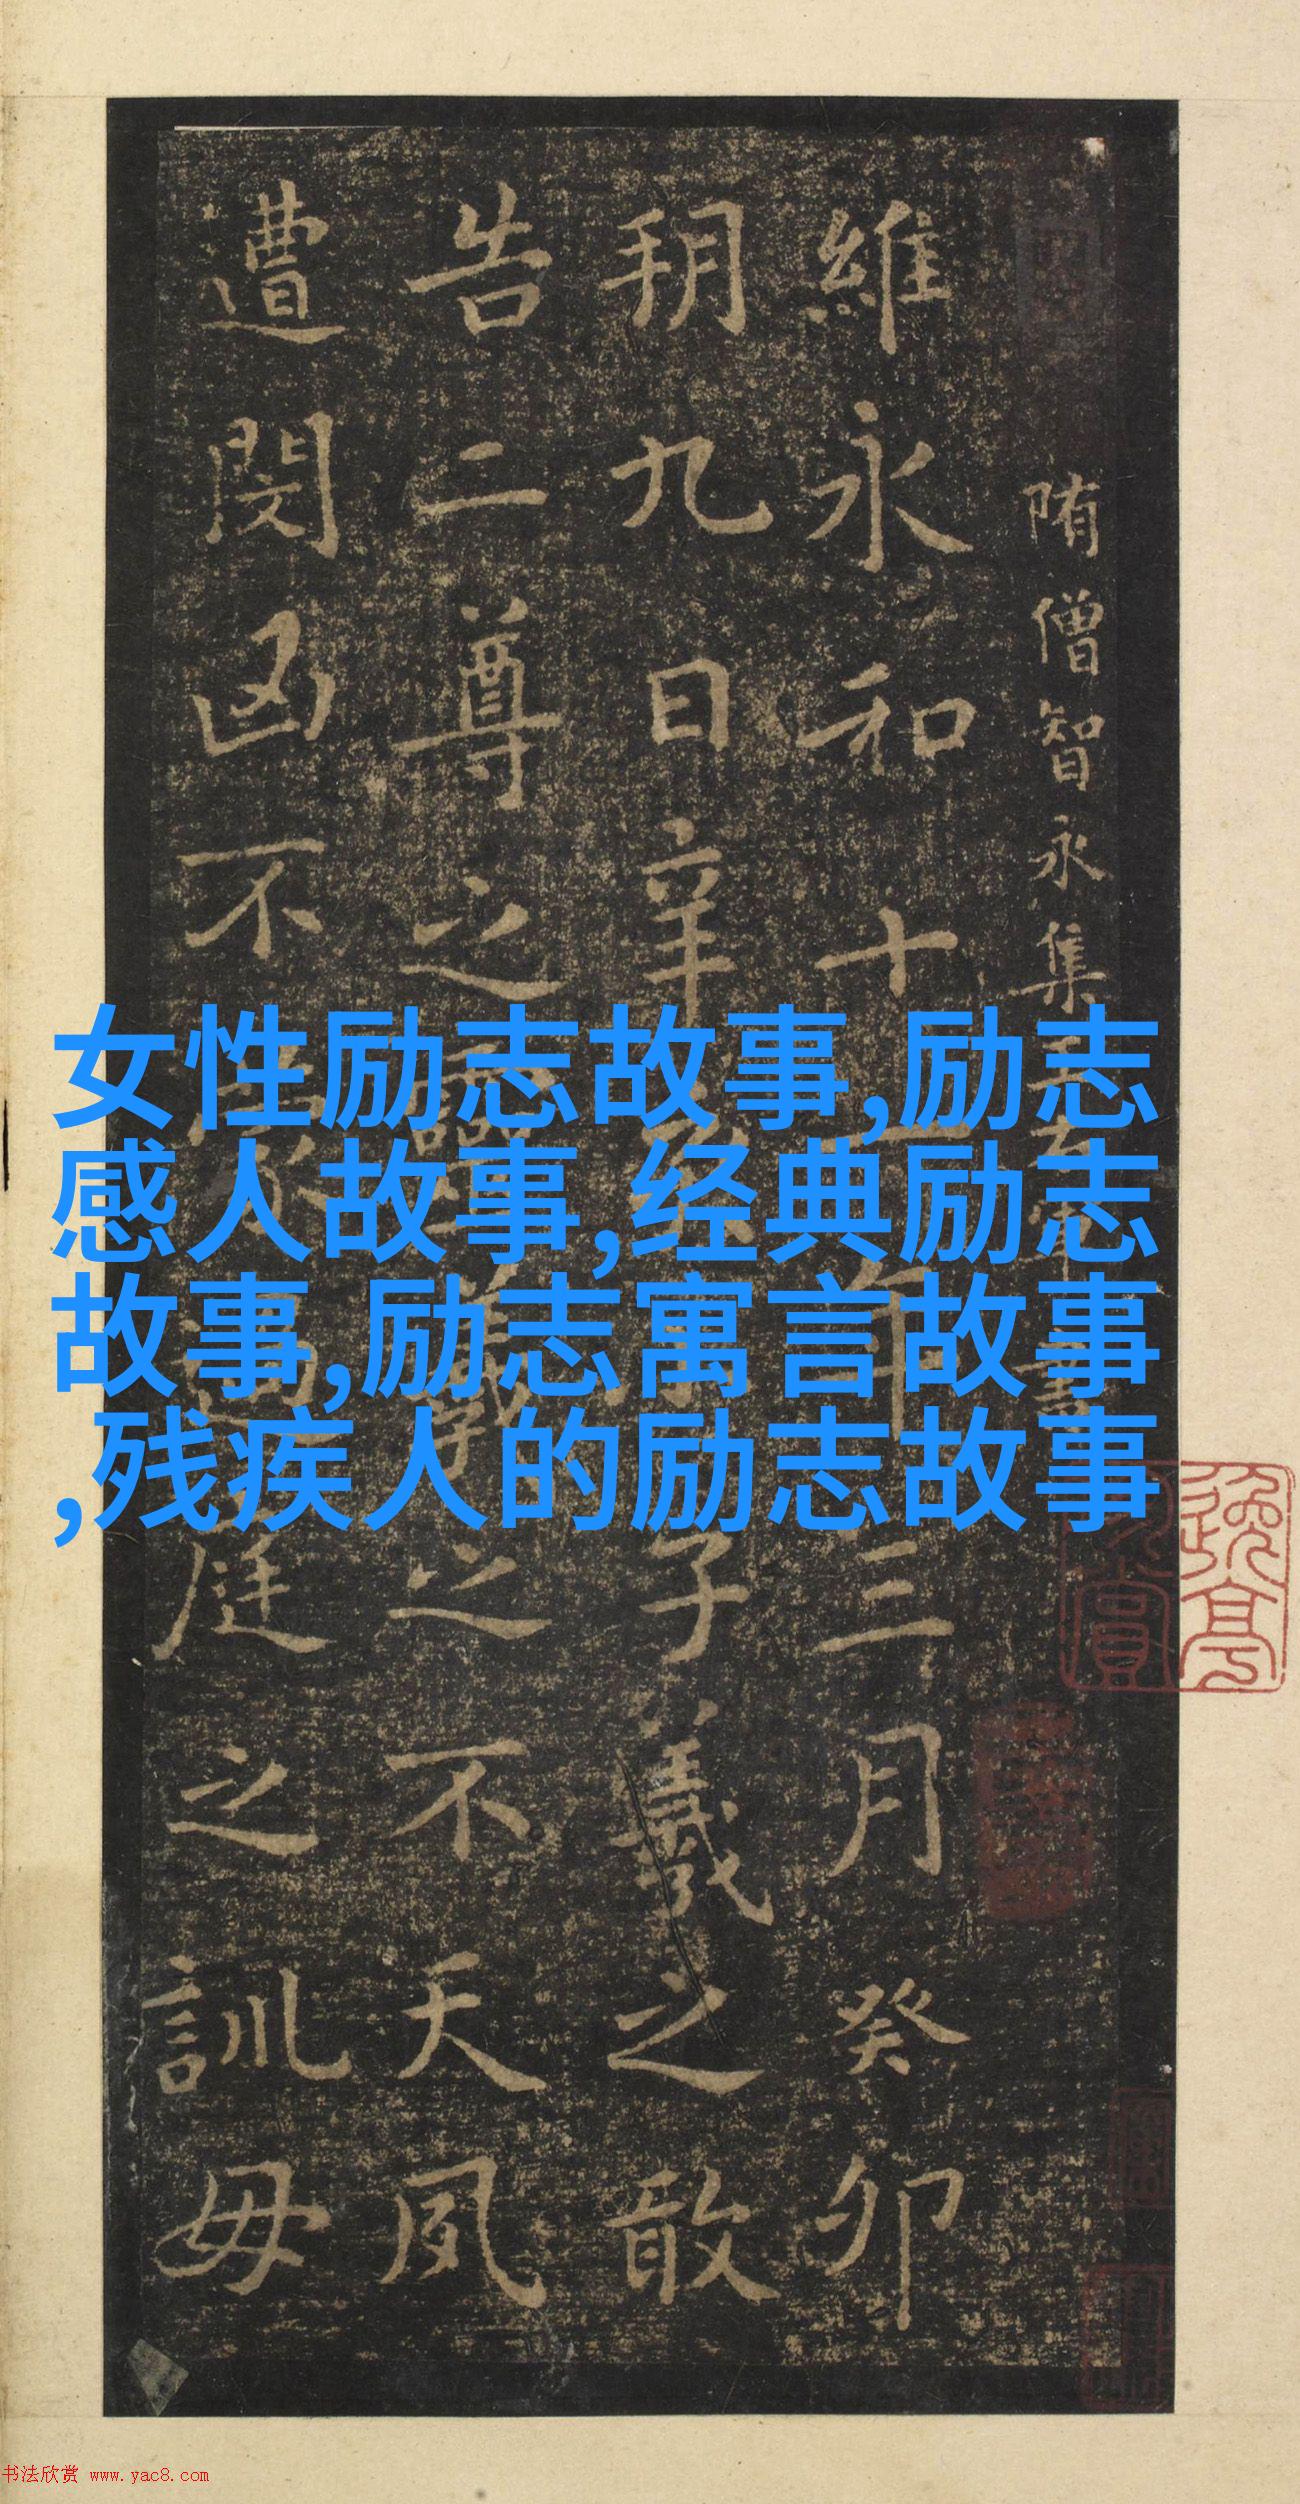 隋僧智永集王右軍書
維永和十一年三月癸卯
朔九日辛亥小子羲之敢
告二尊之靈羲之不天夙
遭閔凶不蒙過庭之訓毋
女性励志故事,励志
感人故事,经典励志
故事,励志寓言故事
,残疾人的励志故事
书法欣赏 www.yac8.com